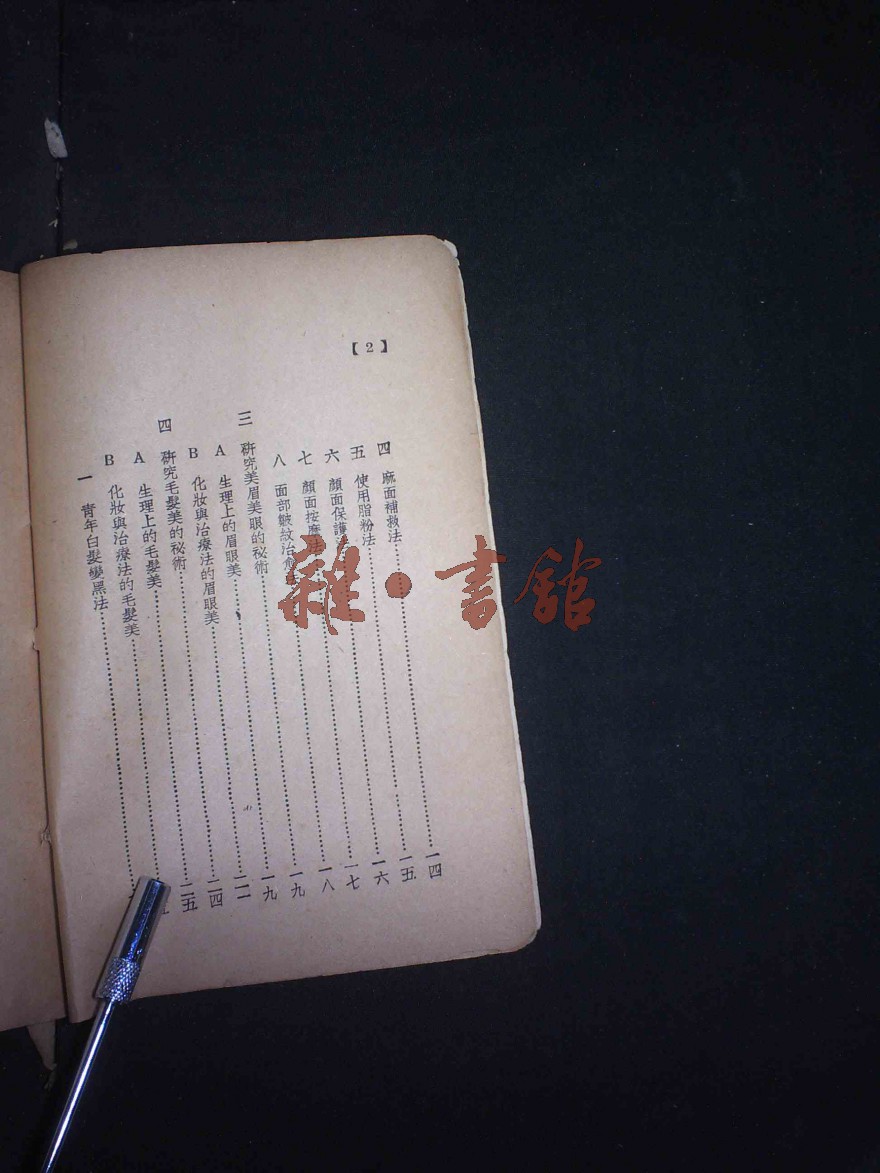 【2】
四 麻面補救法……一四
五 使用脂粉法……一五
六 顏面保護……一六
七 顏面按摩法……一七
八 面部皺紋治愈……一八
三 研究美眉美眼的秘術……一九
A 生理上的眉眼美……一九
B 化妝與治療法的眉眼美……二二
四 研究毛髮美的秘術……二四
A 生理上的毛髮美……二五
B 化妝與治療法的毛髮美……
一 青年白髮變黑法……
雜·書館